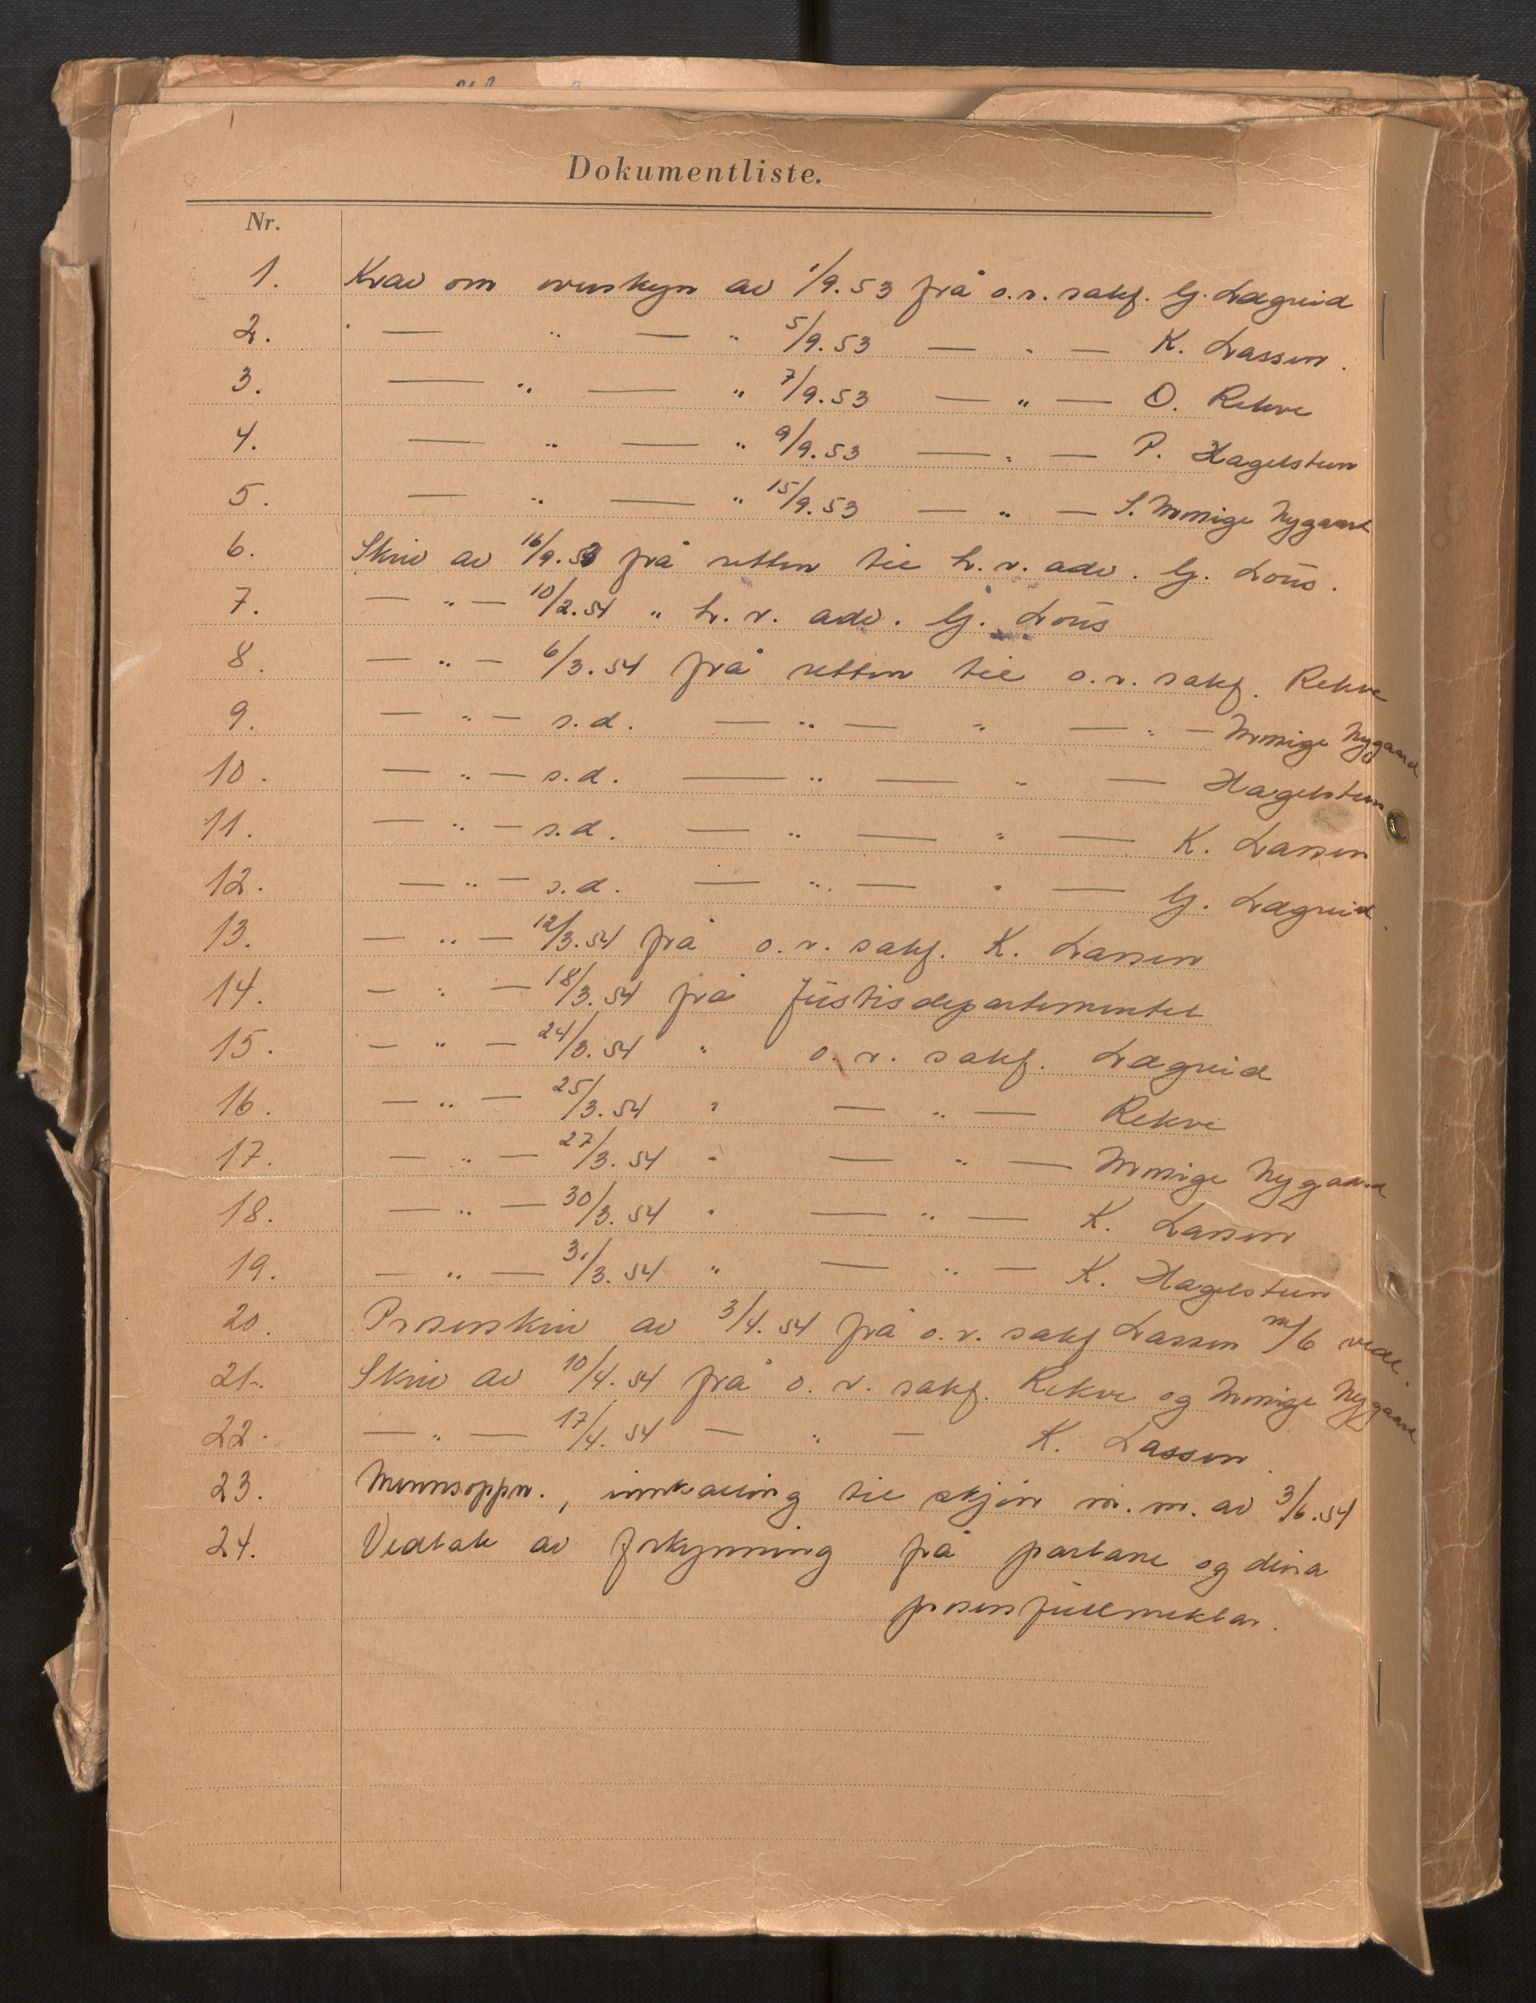 Dokumentliste.
Nr.
1. Krav om overskjn av 1/9.53 frå o.r.sakf. G. Lægreid
2. — " — " 5/9.53 — " — K. Lassen.
3. — " — " 7/9.53 — " — O. Rekve
4. — " — " 9/9.53 — " — P. Hagelsteen
5. — " — " 15/9.53 — " — S. Nygaard
6. Skriv av 16/9.53 frå retten til h.r.adv. G. Lous.
7. — " — 10/2.54 " h.r. adv. G. Lous
8. — " — 6/3.54 frå retten til o.r.sakf. Rekve
9. — " — s.d. — " — " — " — Nygaard
10. — " — s.d. — " — " — Hagelsteen
11. — " — s.d. — " — " — K. Lassen
12. — " — s.d. — " — " — G. Lægreid
13. — " — 12/3.54 frå o.r.sakf. K. Lassen
14. — " — 18/3.54 frå Justisdepartementet
15. — " — 24/3.54 " o.r.sakf. Lægreid
16. — " — 25/3.54 " — " — Rekve
17. — " — 27/3.54 " — " — Nygaard
18. — " — 30/3.54 " — " — K. Lassen
19. — " — 31/3.54 " — " — K. Hagelsteen
20. Prosesskriv av 3/4.54 frå o.r.sakf Lassen m/6 vedl.
21. Skriv av 10/4.54 frå o.r.sakf. Rekve og Nygaard
22. — " — 17/4.54 — " — K. Lassen
23. Mennsoppn., innkalling til skjøn m.m. av 3/6.54
24. Vedtak av forkynning frå partane og deira
prosessfullmektar.